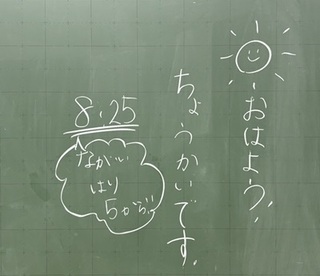 おはよう!
ちょうかいです。
8.25
ながい
はり
5から!!